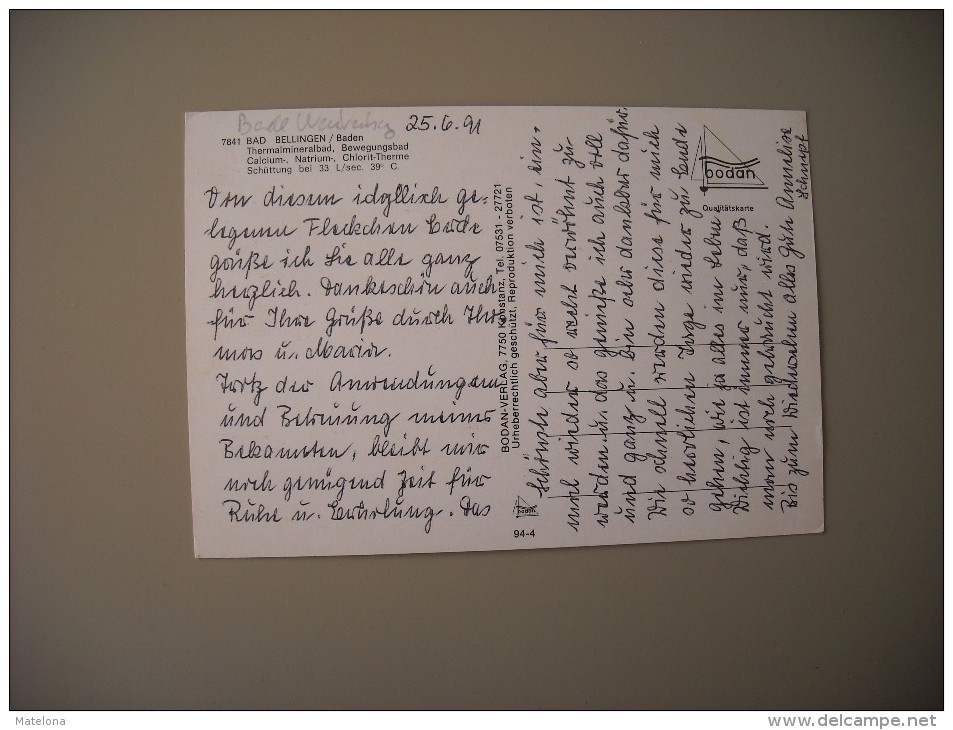 25.6.91
7841 BAD BELLINGEN / Baden
Thermalmineralbad, Bewegungsbad
Calcium-, Natrium-, Chlorit-Therme
Schüttung bei 33 L/sec. 39° C.
Von diesem idyllisch ge-
legenen Fleckchen Erde
grüße ich Sie alle ganz
herzlich. Dankeschön auch
für Ihre Grüße durch Tho-
mas u. Maria.
Trotz der Anwendungen
und Betreuung meiner
Bekannten, bleibt mir
noch genügend Zeit für
Ruhe u. Erholung. Das
BODAN-VERLAG, 7750 Konstanz, Tel. 07531 - 27721
Urheberrechtlich geschützt, Reproduktion verboten
bodan
94-4
Schönste aber für mich ist, ein-
mal wieder so recht verwöhnt zu
werden u. das genieße ich auch voll
und ganz u. bin aber dankbar dafür.
Wie schnell werden diese für mich
so herrlichen Tage wieder zu Ende
gehen, wie ja alles im Leben
Wichtig ist immer nur, daß
man noch gebraucht wird.
Bis zum Wiedersehen alles Gute Annelise
Schnepf
bodan
Qualitätskarte
Matelona
www.delcampe.net